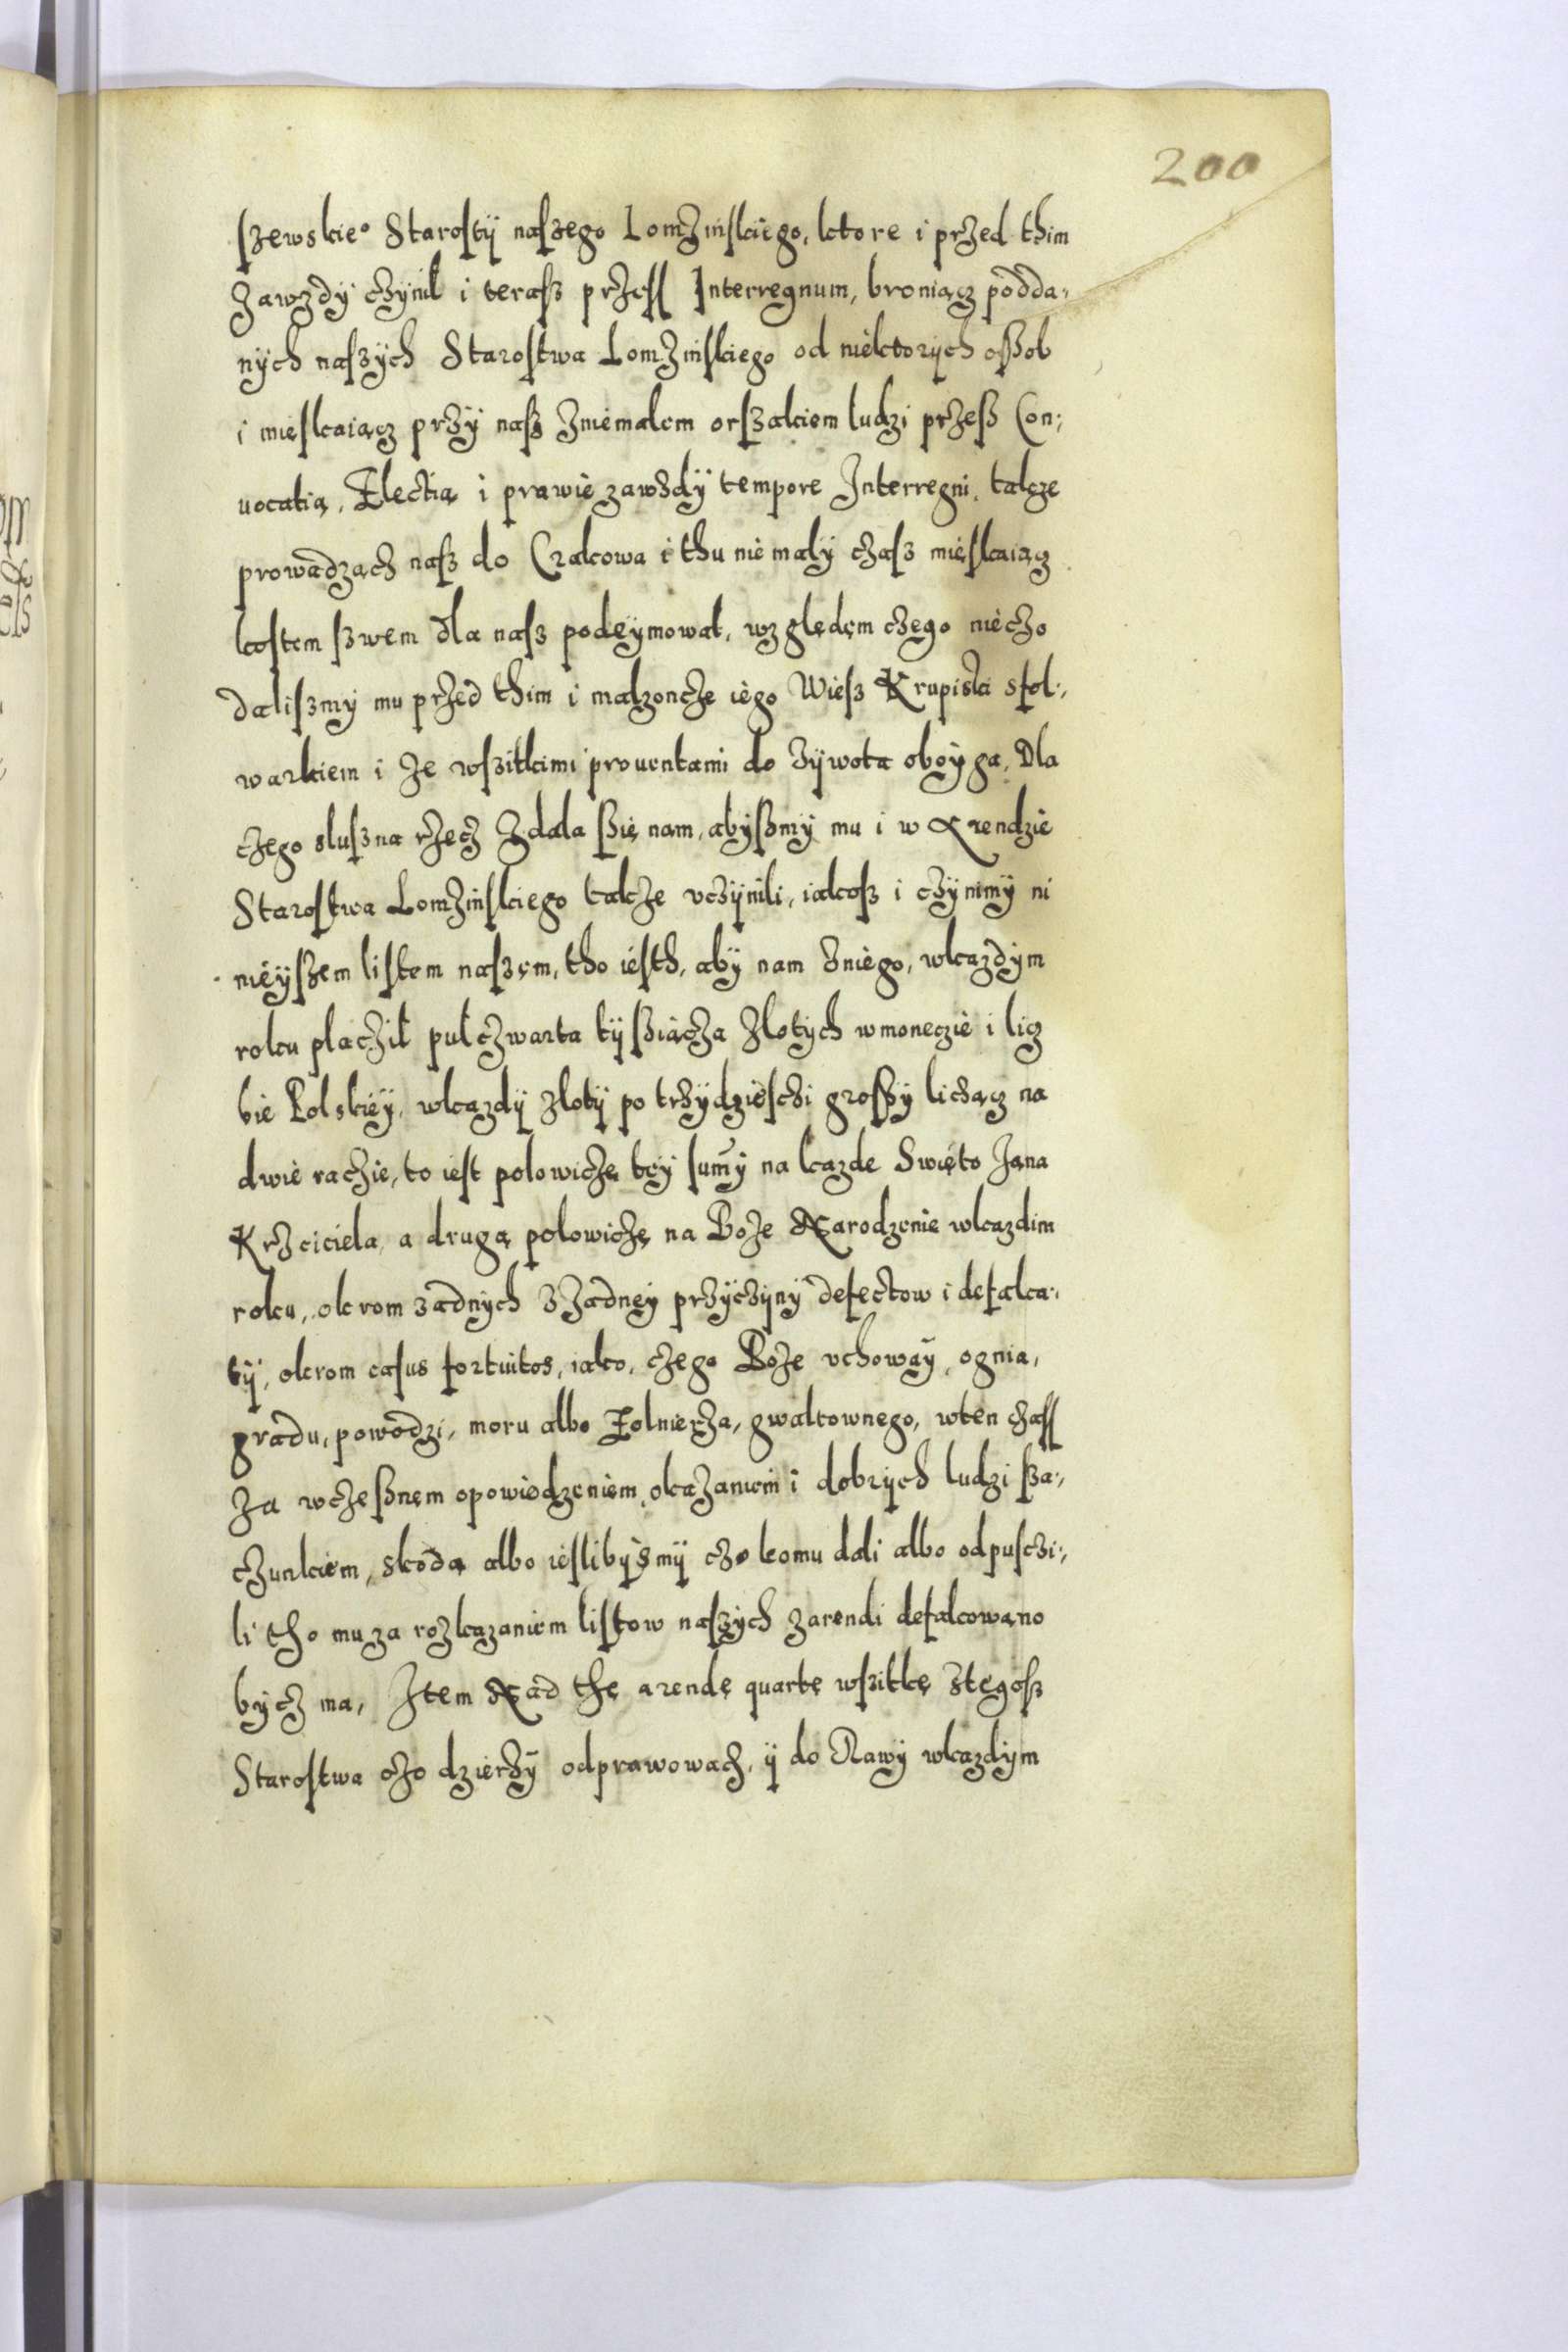 200
szewskie° Starostÿ naszego Lomzinskiego, ktore i przed thim
zawzdÿ czÿnil i terasz przess Interregnum, broniącz podda,
nÿch naszÿch Starostwa Lomzinskiego od niektorÿch oszob
i mieskaiącz przÿ nasz zniemalem orszakiem ludzi przesz Con,
uocatią, Electią i prawie zawzdÿ tempore Interregni, takze
prowadzącz nasz do Crakowa i thu nie malÿ czasz mieskaiącz
kostem szwem dla nasz podeÿmowal, wzglęđem czego nieczo
daliszmÿ mu przed thim i malzoncze iego Wiesz Krupiski sfol,
warkiem i ze wszitkimi prouentami do zÿwota oboÿga, Dla
czego sluszna rzecz zdala szię nam, abÿszmÿ mu i w Arendzie
Starostwa Lomzinskiego takze vczÿnili, iakosz i czÿnimÿ ni
nieÿszem listem naszem, tho iesth, abÿ nam zniego, wkazdÿm
roku placzil pulczwarta tÿsziącza zlotÿch wmoneczie i licz
bie Polskieÿ, wkazdÿ zlotÿ po trzÿdziesczi groszÿ licząc na
dwie raczie, to iest polowiczę teÿ sum̃ÿ na kazde Swięto Jana
Krzciciela, a drugą polowiczę na Boze Narodzenie wkazdim
roku, okrom zadnÿch zzadneÿ przÿczÿnÿ defectow i defalca,
tÿ, okrom casus fortuitos, iako, czego Boze vchowaÿ, ognia,
gradu, powodzi, moru albo Zolnierza, gwaltownego, wten czass
za wczesznem opowiedzeniem, okazaniem i dobrÿch ludzi sza,
czunkiem, skodą albo ieslibÿsmÿ czo komu dali albo odpusczi,
li tho mu za rozkazaniem listow naszÿch zarendi defalcowano
bÿcz ma, Item Nad thę arendę quartę wszitkę ztegosz
Starostwa czo dzierzÿ odprawowacz, ÿ do Rawÿ wkazdÿm